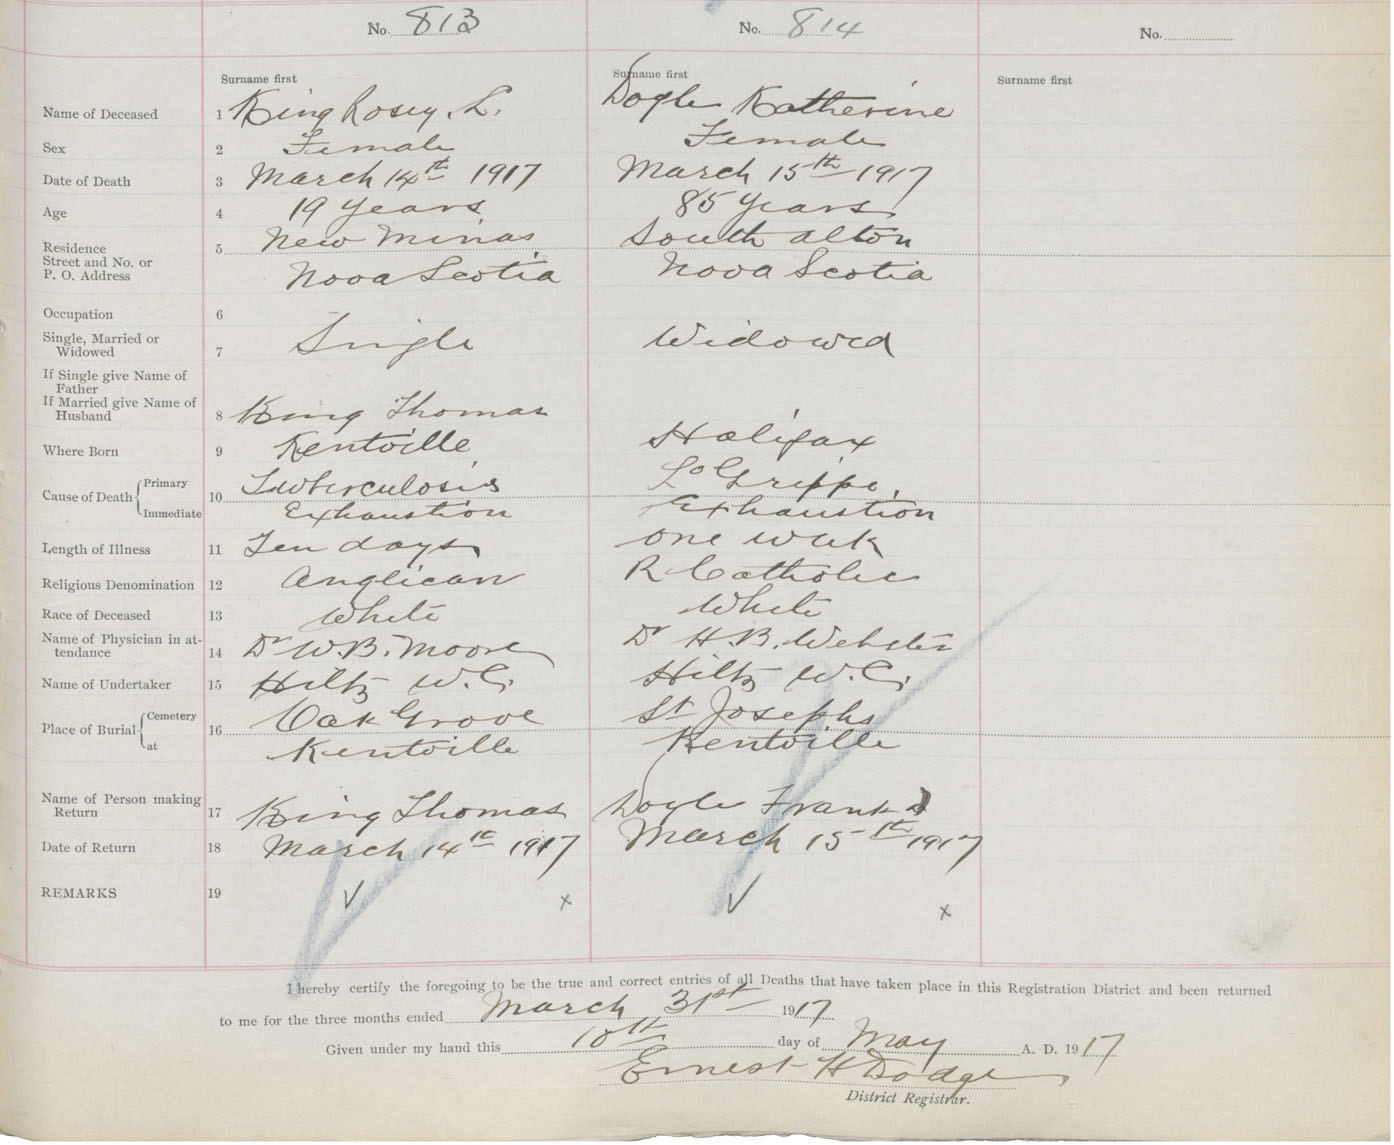 No. 813 No. 814 No.
Surname first Surname first Surname first
Name of Deceased 1 King Rosey. L. Doyle Katherine
Sex 2 Female Female
Date of Death 3 March 14th 1917 March 15th 1917
Age 4 19 Years 85 Years
Residence 5 New Minas South Alton
Street and No. or
P. O. Address Nova Scotia Nova Scotia
Occupation 6
Single, Married or
Widowed 7 Single Widowed
If Single give Name of
Father
If Married give Name of
Husband 8 King Thomas
Where Born 9 Kentville Halifax
Cause of Death { Primary 10 Tuberculosis La Grippe.
Immediate Exhaustion Exhaustion
Length of Illness 11 Ten days One week
Religious Denomination 12 Anglican R Catholic
Race of Deceased 13 White White
Name of Physician in at-
tendance 14 Dr W. B. Moore Dr H. B. Webster
Name of Undertaker 15 Hiltz W. C. Hiltz W. C.
Place of Burial { Cemetery 16 Oak Grove St Josephs
at Kentville Kentville
Name of Person making
Return 17 King Thomas Doyle Frank
Date of Return 18 March 14th 1917 March 15th 1917
REMARKS 19 ✓ x ✓ x
I hereby certify the foregoing to be the true and correct entries of all Deaths that have taken place in this Registration District and been returned
to me for the three months ended March 31st 1917
Given under my hand this 10th day of May A. D. 1917
Ernest H Dodge
District Registrar.